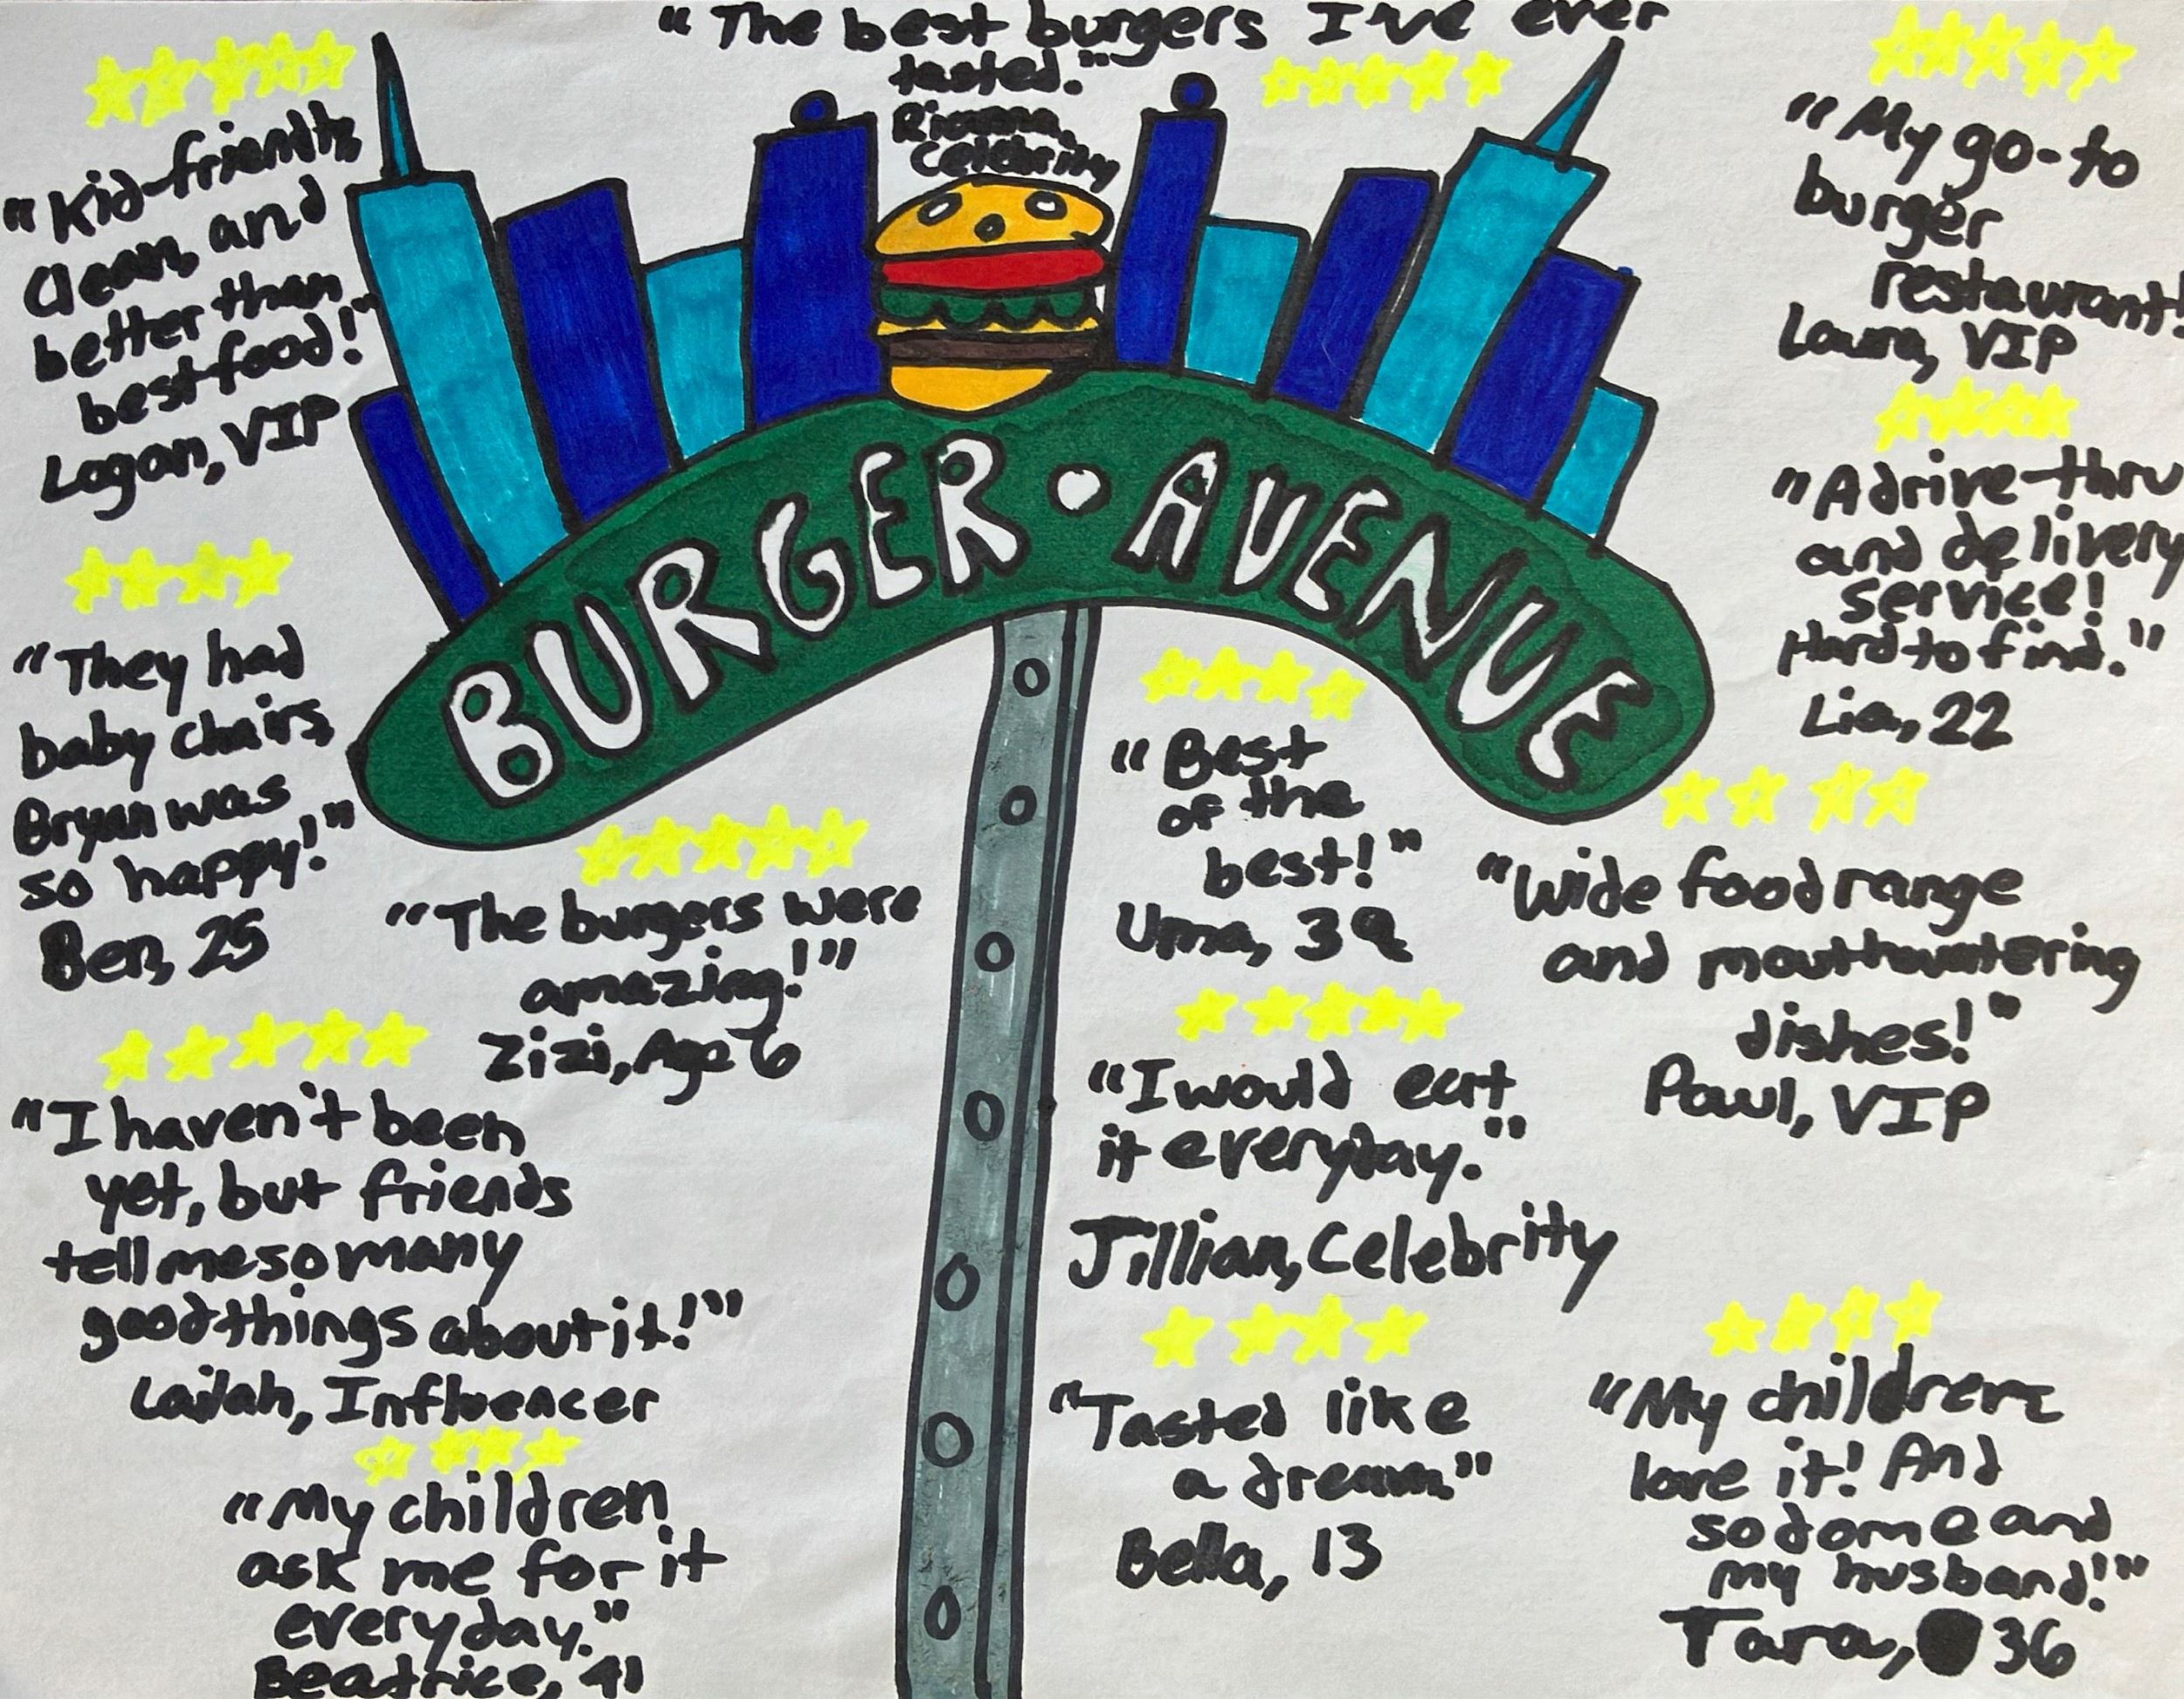 "The best burgers I've ever
tasted."
Celebrity
"Kid-friendly,
Clean, and
better than
best food!"
Logan, VIP
"They had
baby chairs,
Bryan was
so happy!"
Ben, 25
BURGER • AVENUE
"My go-to
burger
restaurant!
Laura, VIP
"A drive-thru
and delivery
service!
Hard to find."
Lia, 22
"The burgers were
amazing!"
Zizi, Age 6
"Best
of the
best!"
Uma, 39
"Wide food range
and mouthwatering
dishes!"
Paul, VIP
"I haven't been
yet, but friends
tell me so many
good things about it!"
Lailah, Influencer
"I would eat
it everyday."
Jillian, Celebrity
"My children
ask me for it
everyday."
Beatrice, 41
"Tasted like
a dream."
Bella, 13
"My children
love it! And
so do me and
my husband!"
Tara, 36